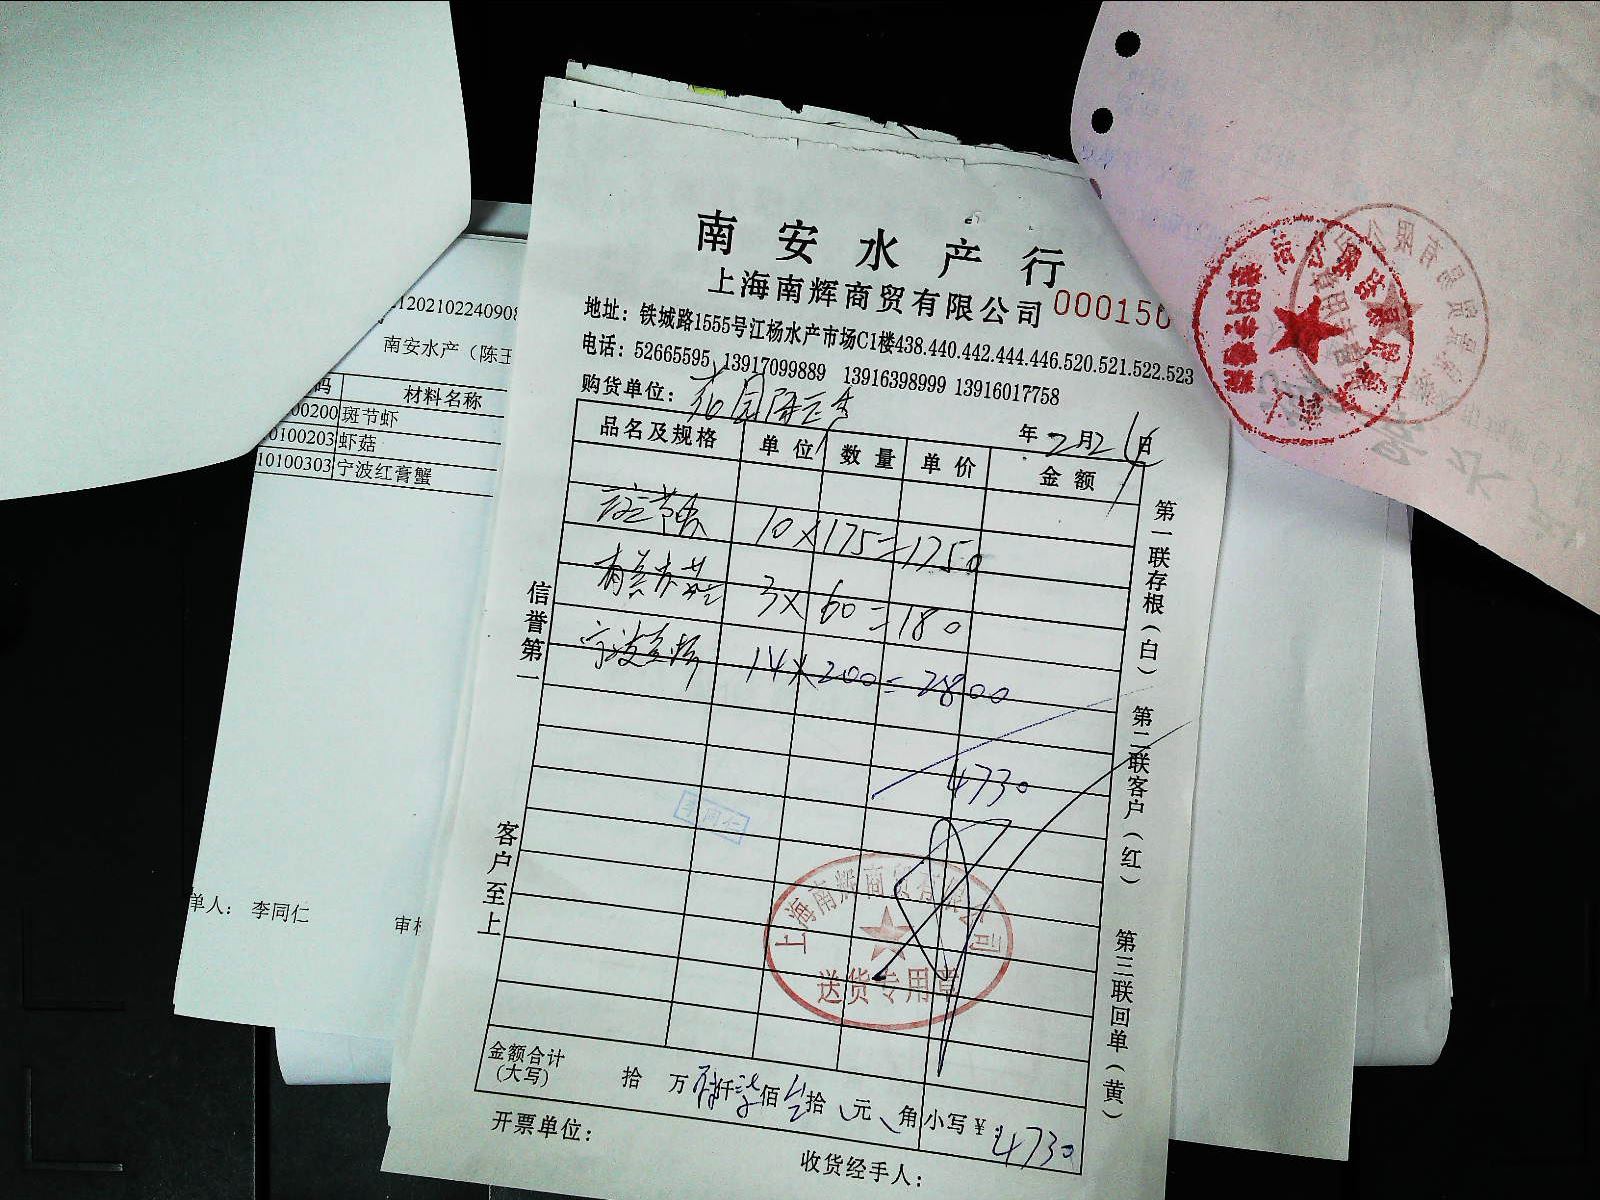 南安水产行
上海南辉商贸有限公司 000150
地址：铁城路1555号江杨水产市场C1楼438.440.442.444.446.520.521.522.523
电话：52665595 13917099889 13916398999 13916017758
购货单位：
年 2月24日
品名及规格 单位 数量 单价 金额
斑节虾 10×175=1750
3×60=180
14×200=2800
4730
李同仁
上海南辉商贸有限公司
送货专用章
金额合计
(大写) 拾 万 肆仟柒佰叁拾 元 角 小写￥ ￥4730
开票单位：
收货经手人：
信誉第一
客户至上
第一联存根（白）
第二联客户（红）
第三联回单（黄）
1202102240908
南安水产（陈玉
码 材料名称
00200 斑节虾
0100203 虾菇
10100303 宁波红膏蟹
单人： 李同仁
审核